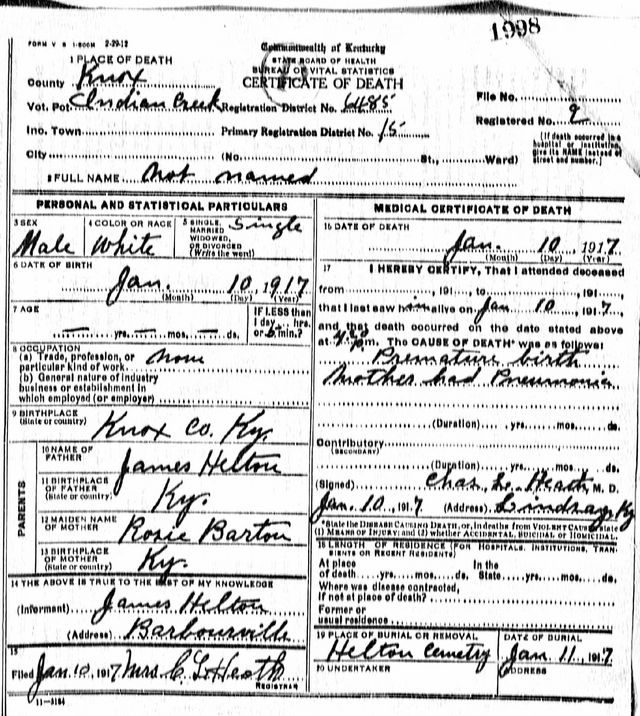 1998
FORM V S 1-500M 2-29-12
Commonwealth of Kentucky
STATE BOARD OF HEALTH
BUREAU OF VITAL STATISTICS
CERTIFICATE OF DEATH
1 PLACE OF DEATH
County Knox
Vot. Pct. Indian Creek Registration District No. 6485
File No.
Inc. Town Primary Registration District No. 15
Registered No. 2
City (No. St., Ward)
(If death occurred in a hospital or institution, give its NAME instead of street and number.)
2 FULL NAME Not named
PERSONAL AND STATISTICAL PARTICULARS
3 SEX Male
4 COLOR OR RACE White
5 SINGLE, MARRIED WIDOWED, OR DIVORCED (Write the word) Single
6 DATE OF BIRTH
Jan. 10, 1917
(Month) (Day) (Year)
7 AGE
— yrs. — mos. — ds.
IF LESS than 1 day... hrs. or 5 min.?
8 OCCUPATION
(a) Trade, profession, or particular kind of work none
(b) General nature of industry
business or establishment in
which employed (or employer)
9 BIRTHPLACE
(State or country) Knox Co. Ky.
PARENTS
10 NAME OF FATHER James Helton
11 BIRTHPLACE OF FATHER (State or country) Ky.
12 MAIDEN NAME OF MOTHER Rosie Barton
13 BIRTHPLACE OF MOTHER Ky.
14 THE ABOVE IS TRUE TO THE BEST OF MY KNOWLEDGE
(Informant) James Helton
(Address) Barbourville
15
Filed Jan. 10, 1917 Mrs C L Heath
REGISTRAR
11-3184
MEDICAL CERTIFICATE OF DEATH
16 DATE OF DEATH
Jan. 10, 1917
(Month) (Day) (Year)
17 I HEREBY CERTIFY, That I attended deceased
from , 191 , to , 191 ,
that I last saw him alive on Jan 10, 1917,
and that death occurred on the date stated above
at m. The CAUSE OF DEATH* was as follows:
Premature birth
Mother had Pneumonia
(Duration) yrs. mos. ds.
Contributory
(SECONDARY)
(Duration) yrs. mos. ds.
(Signed) Chas. L. Heath, M. D.
Jan. 10, 1917 (Address) Lindsay, Ky
*State the DISEASE CAUSING DEATH, or, in deaths from VIOLENT CAUSES state
(1) MEANS OF INJURY; and (2) whether ACCIDENTAL, SUICIDAL or HOMICIDAL.
18 LENGTH OF RESIDENCE (FOR HOSPITALS, INSTITUTIONS, TRANSIENTS OR RECENT RESIDENTS)
At place of death yrs. mos. ds. In the State yrs. mos. ds.
Where was disease contracted,
if not at place of death?
Former or
usual residence
19 PLACE OF BURIAL OR REMOVAL
Helton Cemetry
DATE OF BURIAL
Jan. 11, 1917
20 UNDERTAKER
ADDRESS